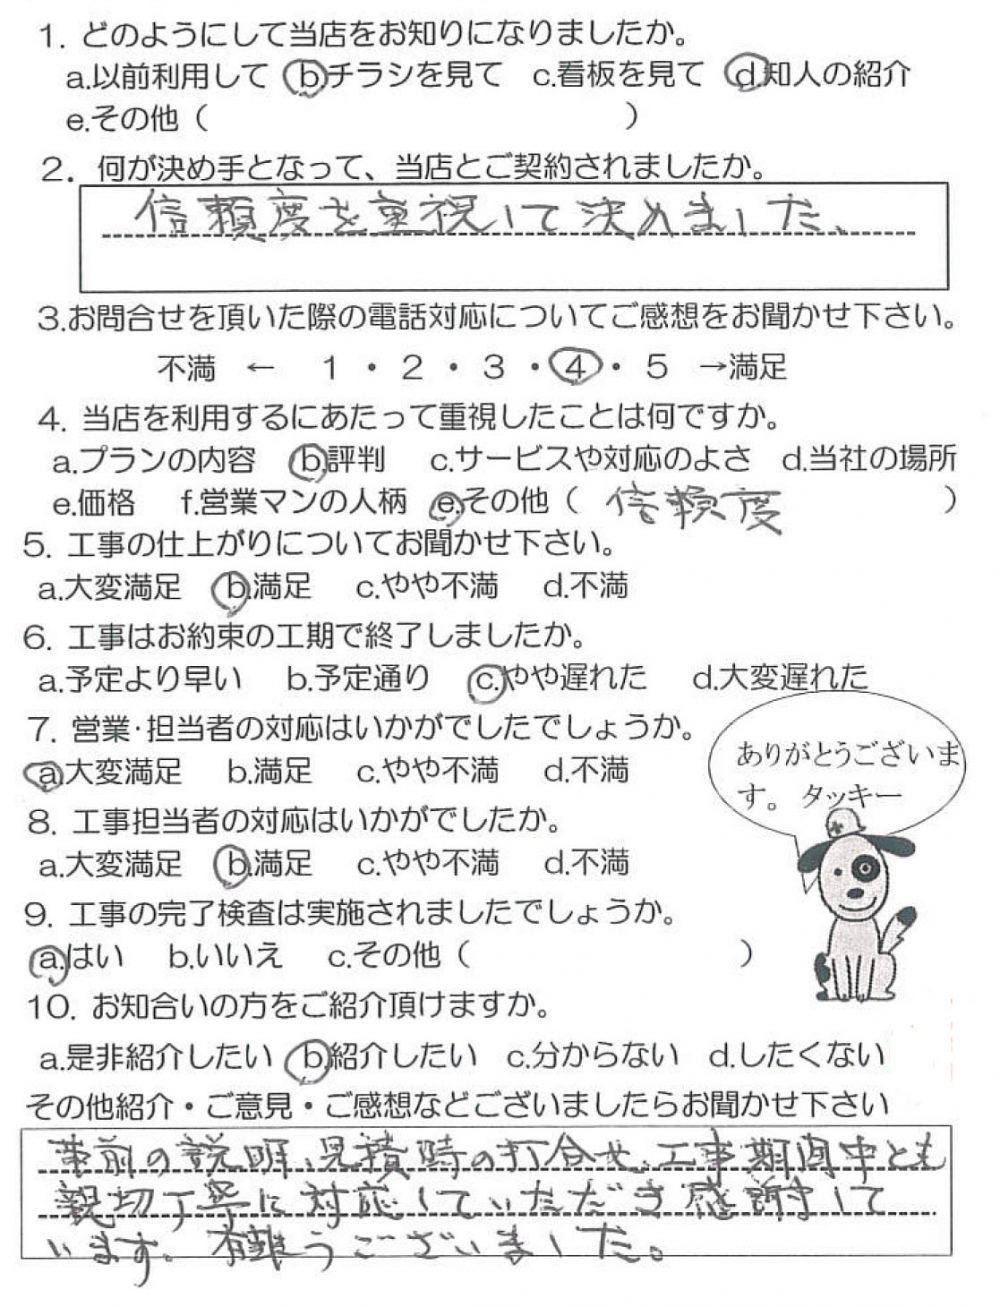 1. どのようにして当店をお知りになりましたか。
a.以前利用して b.チラシを見て c.看板を見て d.知人の紹介
e.その他（ ）
2. 何が決め手となって、当店とご契約されましたか。
信頼度を重視して決めました、
3.お問合せを頂いた際の電話対応についてご感想をお聞かせ下さい。
不満 ← 1・2・3・4・5 →満足
4. 当店を利用するにあたって重視したことは何ですか。
a.プランの内容 b.評判 c.サービスや対応のよさ d.当社の場所
e.価格 f.営業マンの人柄 e.その他（ 信頼度 ）
5. 工事の仕上がりについてお聞かせ下さい。
a.大変満足 b.満足 c.やや不満 d.不満
6. 工事はお約束の工期で終了しましたか。
a.予定より早い b.予定通り c.やや遅れた d.大変遅れた
7. 営業・担当者の対応はいかがでしたでしょうか。
a.大変満足 b.満足 c.やや不満 d.不満
ありがとうございま
す。 タッキー
8. 工事担当者の対応はいかがでしたか。
a.大変満足 b.満足 c.やや不満 d.不満
9. 工事の完了検査は実施されましたでしょうか。
a.はい b.いいえ c.その他（ ）
10. お知合いの方をご紹介頂けますか。
a.是非紹介したい b.紹介したい c.分からない d.したくない
その他紹介・ご意見・ご感想などございましたらお聞かせ下さい
事前の説明、見積時の打合せ、工事期間中とも
親切丁寧に対応していただき感謝して
います。有難うございました。